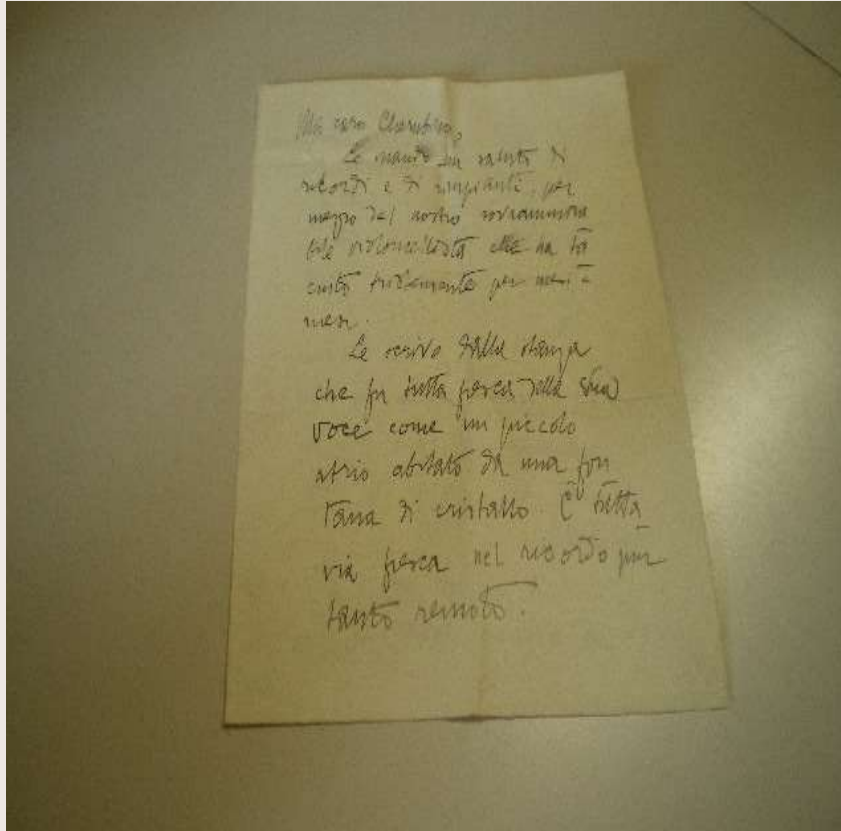 Mio caro Cherubino,
Le mando un saluto di
ricordi e di rimpianti, per
mezzo del nostro
violoncellista che ha ta
ciuto per mesi e
mesi.
Le scrivo dalla stanza
che fu tutta fresca della sua
voce come un piccolo
atrio abitato da una fon
tana di cristallo. È tutta
via fresca nel ricordo pur
tanto remoto.